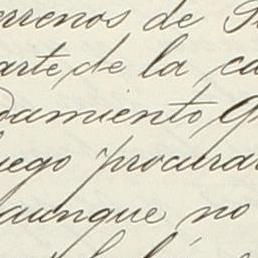 errenos de
arte, de la ca
damiento,
uego procurar
aunque no